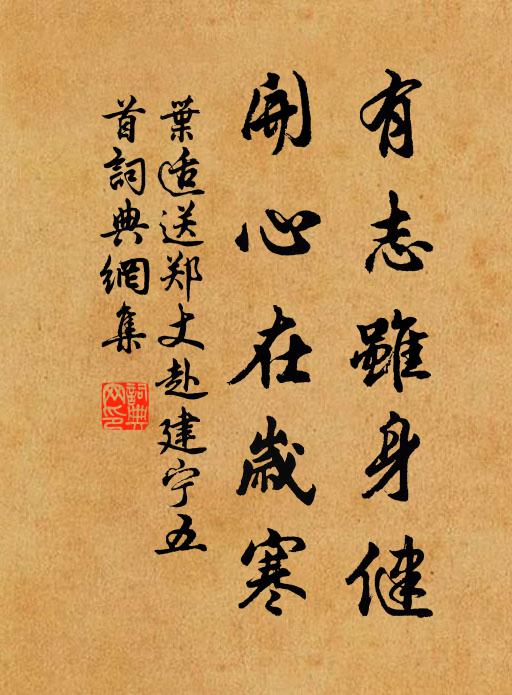 有志雖身健
開心在歲寒
葉适送郑丈赴建宁五
首詞典網集
詞典网印